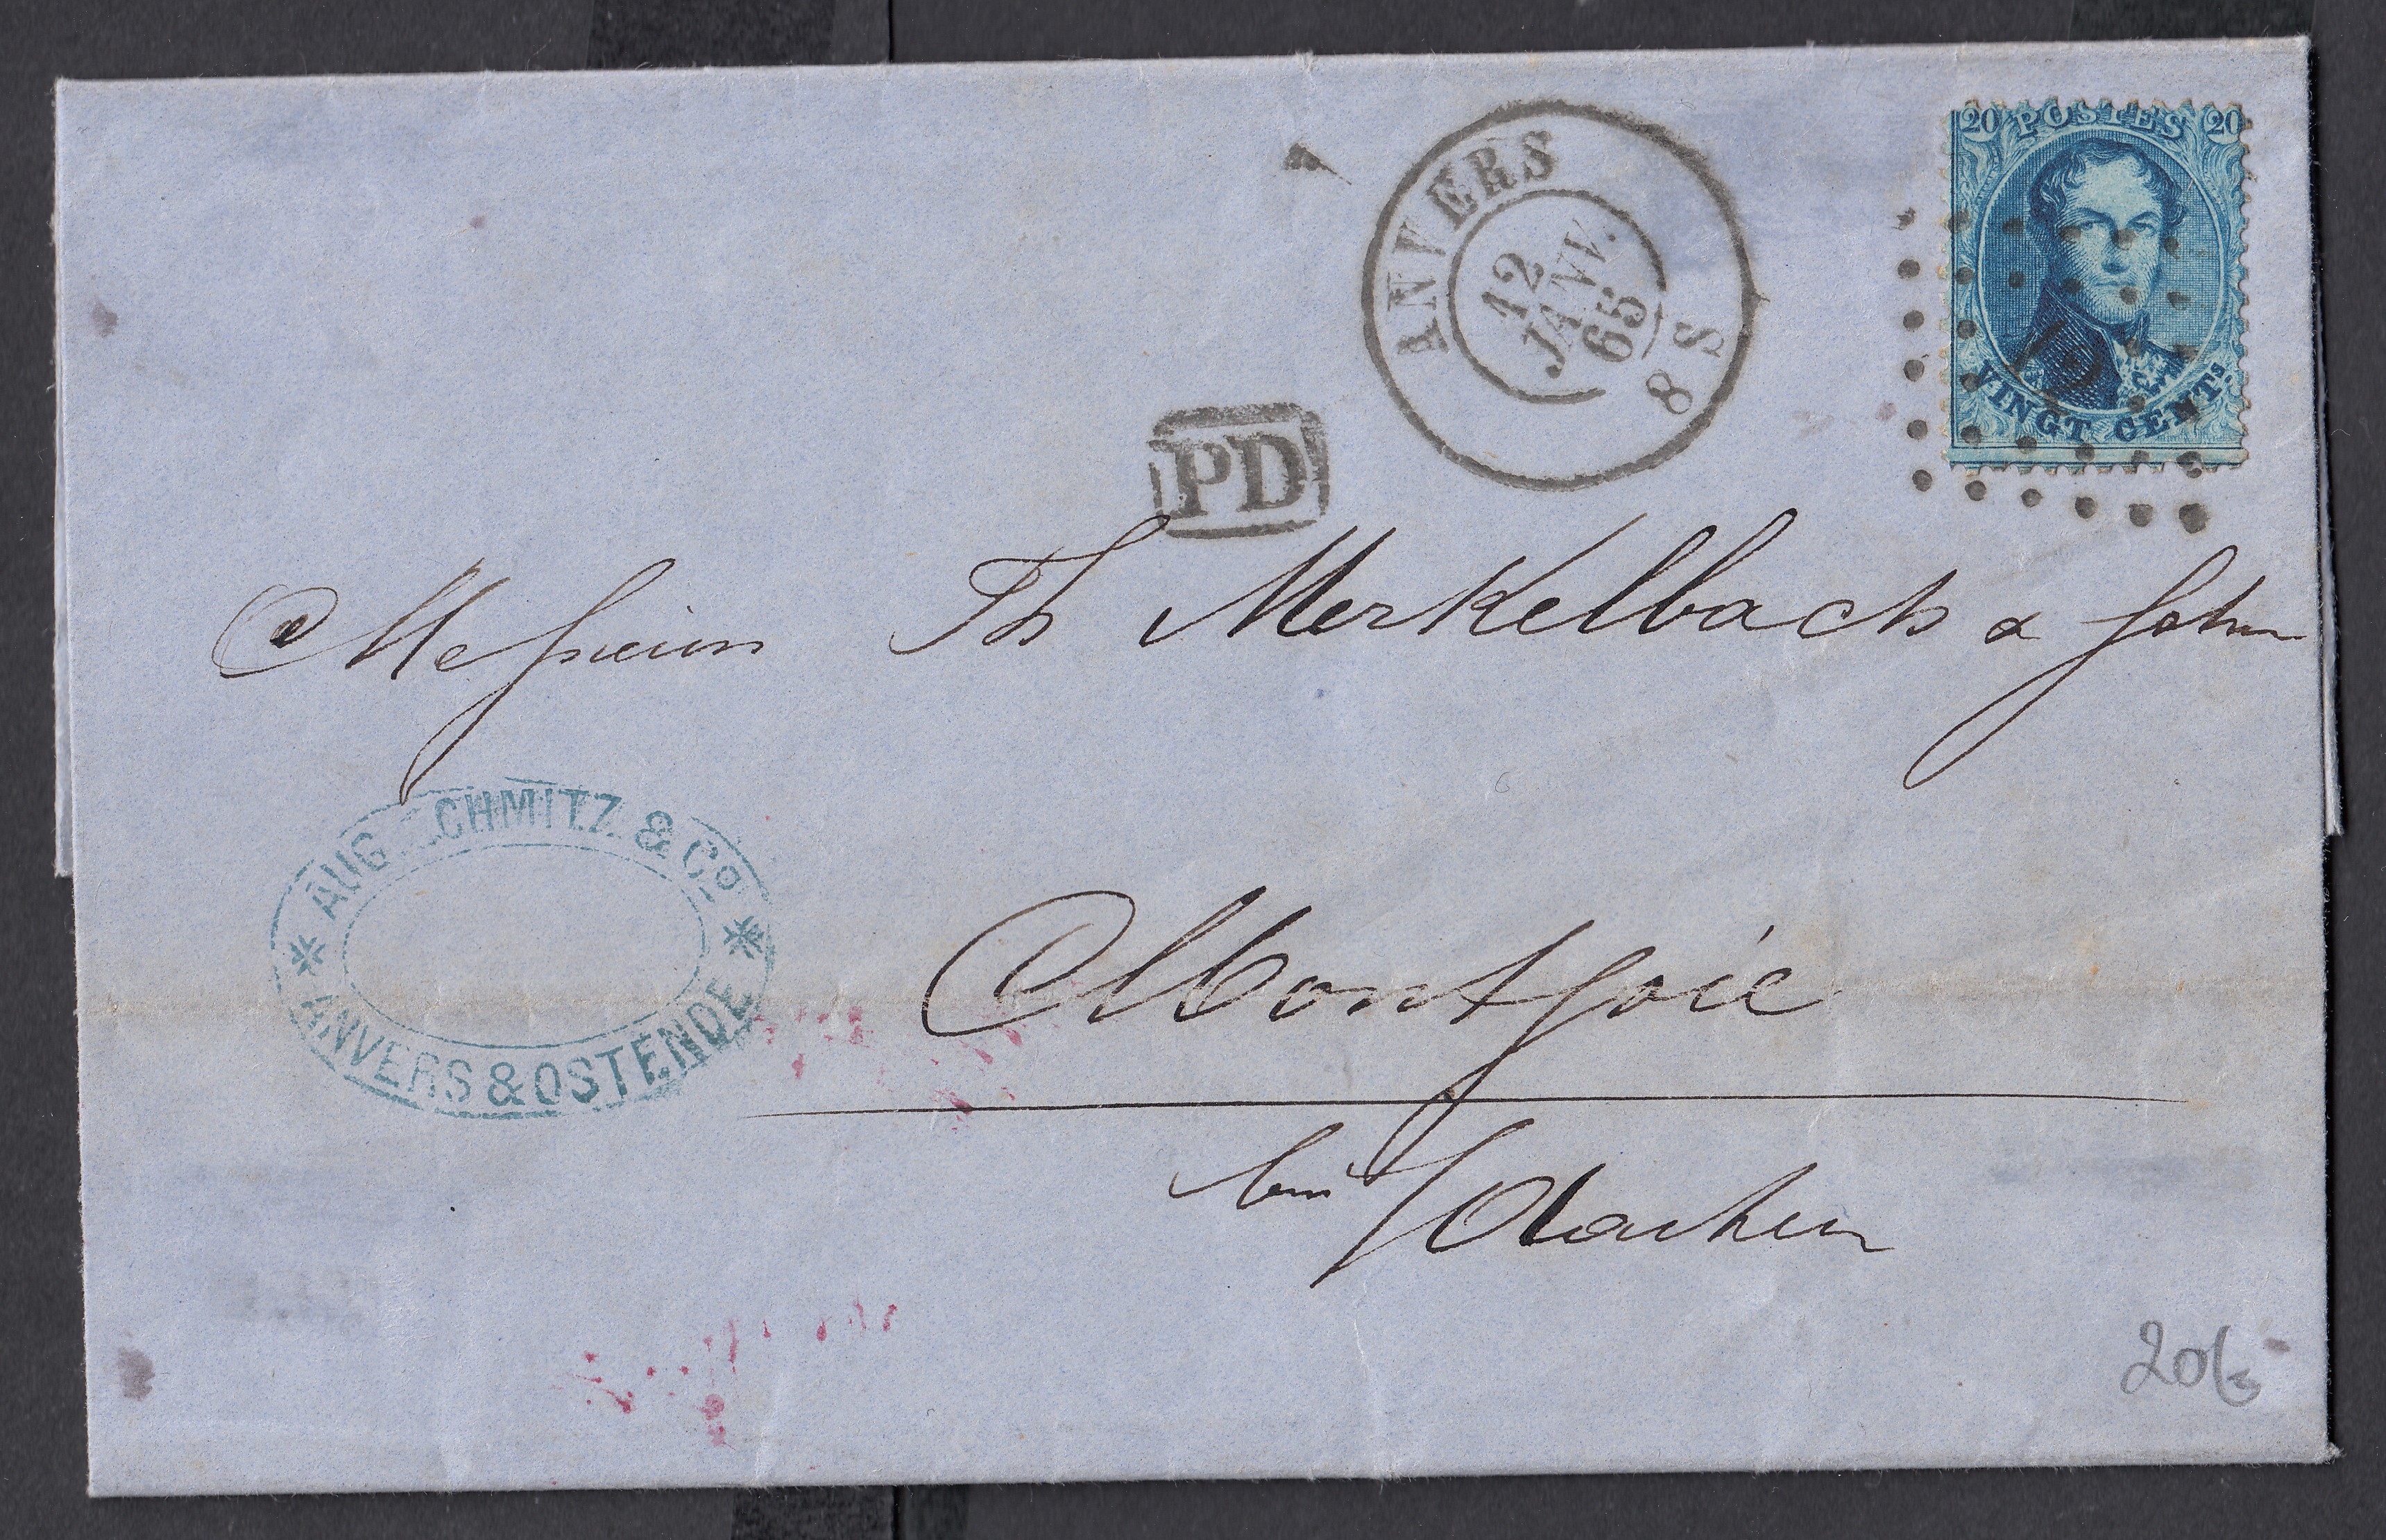 20 POSTES 20
VINGT CENTS
ANVERS
12
JANV.
65
8 S
PD
Messieurs Th Merkelbach & Sohn
AUG CHMITZ & Co
ANVERS & OSTENDE
Montjoie
bei Aachen